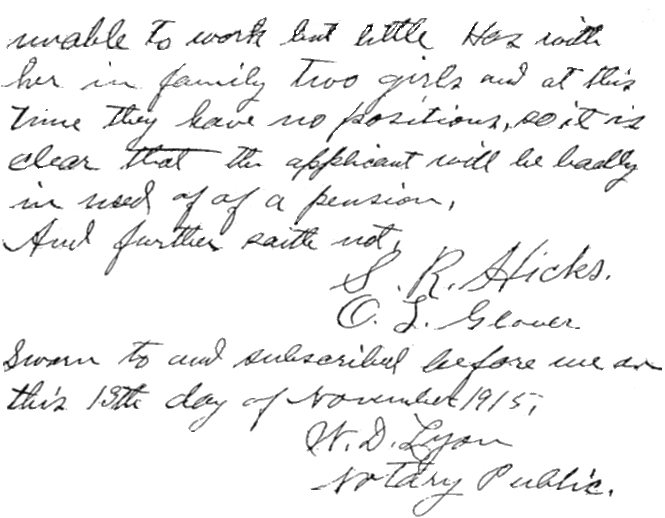 unable to work but little Has with
her in family two girls and at this
time they have no positions, so it is
clear that the applicant will be badly
in need of of a pension,
And further saith not,
S. R. Hicks.
O. L. Glover
Sworn to and subscribed before me on
this 13th day of November 1915,
W. D. Lyon
Notary Public.